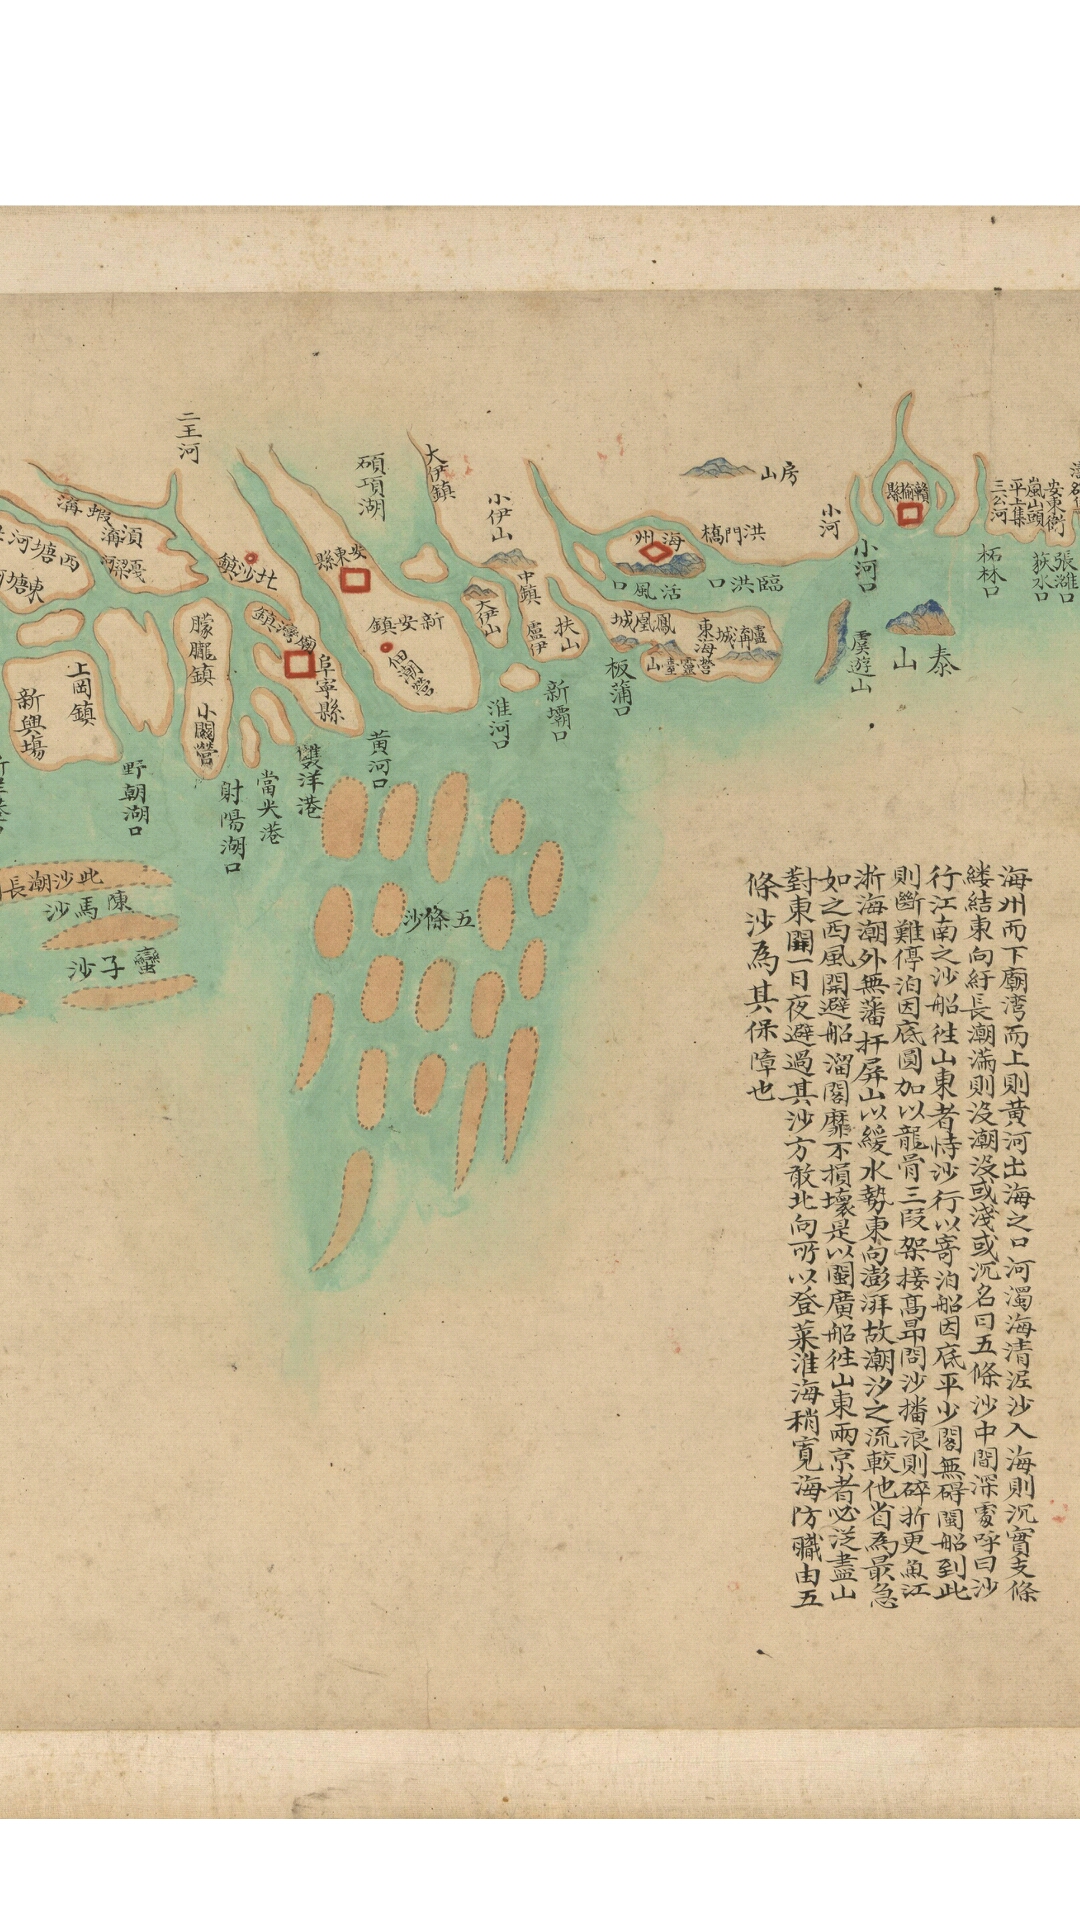 海州而下廟湾而上則黄河出海之口河濁海清泥沙入海則沉實支條
縷結東向紆長潮滿則沒潮沒或淺或沉名曰五條沙中間深處呼曰沙
行江南之沙船徃山東者恃沙行以寄泊船因底平少閣無碍閩船到此
則斷難停泊因底圓加以龍骨三段架接高昂閣沙播浪則碎折更魚江
浙海潮外無藩扞屏山以緩水勢東向澎湃故潮汐之流較他省為最急
如之西風開避船溜閣靡不損壞是以閩廣船徃山東兩京者必泛盡山
對東開一日夜避過其沙方敢北向所以登莱淮海稍寬海防職由五
條沙為其保障也
安東衛
嵐山頭
平上集
三公河
張濰口
荻水口
柘林口
贛榆縣
小河
小河口
泰山
虞遊山
房山
洪門橋
海州
臨洪口
活風口
鳳凰城
東海營
板蒲口
扶山
盧伊
中鎮
小伊山
大伊山
大伊鎮
新壩口
淮河口
碩項湖
安東縣
新安鎮
佃湖營
黄河口
北沙鎮
廟灣鎮
阜寧縣
雙洋港
當尖港
射陽湖口
二王河
朦朧鎮
小關營
野朝湖口
上岡鎮
新興場
五條沙
陳馬沙
蠻子沙